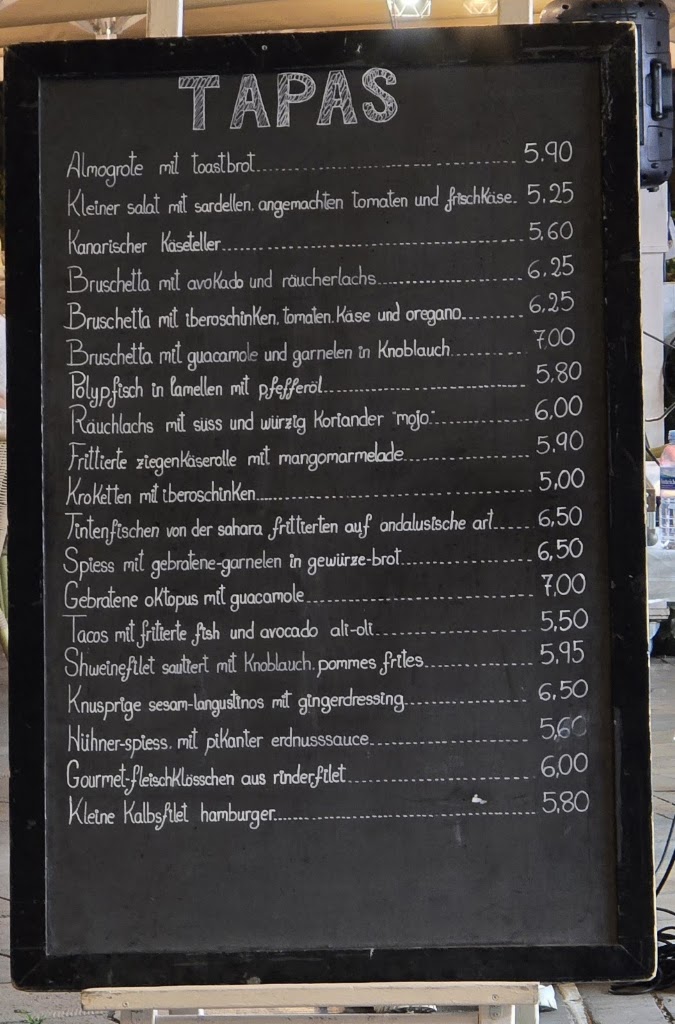 TAPAS
Almogrote mit toastbrot 5.90
Kleiner salat mit sardellen, angemachten tomaten und frischkäse. 5.25
Kanarischer Käseteller 5,60
Bruschetta mit avokado und räucherlachs 6.25
Bruschetta mit iberoschinken, tomaten, Käse und oregano 6.25
Bruschetta mit guacamole und garnelen in Knoblauch 7.00
Polypfisch in lamellen mit pfefferöl 5,80
Räuchlachs mit süss und würzig Koriander "mojo" 6,00
Frittierte ziegenkäserolle mit mangomarmelade 5,90
Kroketten mit iberoschinken 5,00
Tintenfischen von der sahara frittierten auf andalusische art 6,50
Spiess mit gebratene-garnelen in gewürze-brot 6,50
Gebratene oktopus mit guacamole 7,00
Tacos mit fritierte fish und avocado ali-oli 5,50
Shweinefilet sautiert mit Knoblauch, pommes frites 5,95
Knusprige sesam-langustinos mit gingerdressing 6,50
Hühner-spiess, mit pikanter erdnusssauce 5,60
Gourmet-fleischklösschen aus rinderfilet 6,00
Kleine Kalbsfilet hamburger 5,80